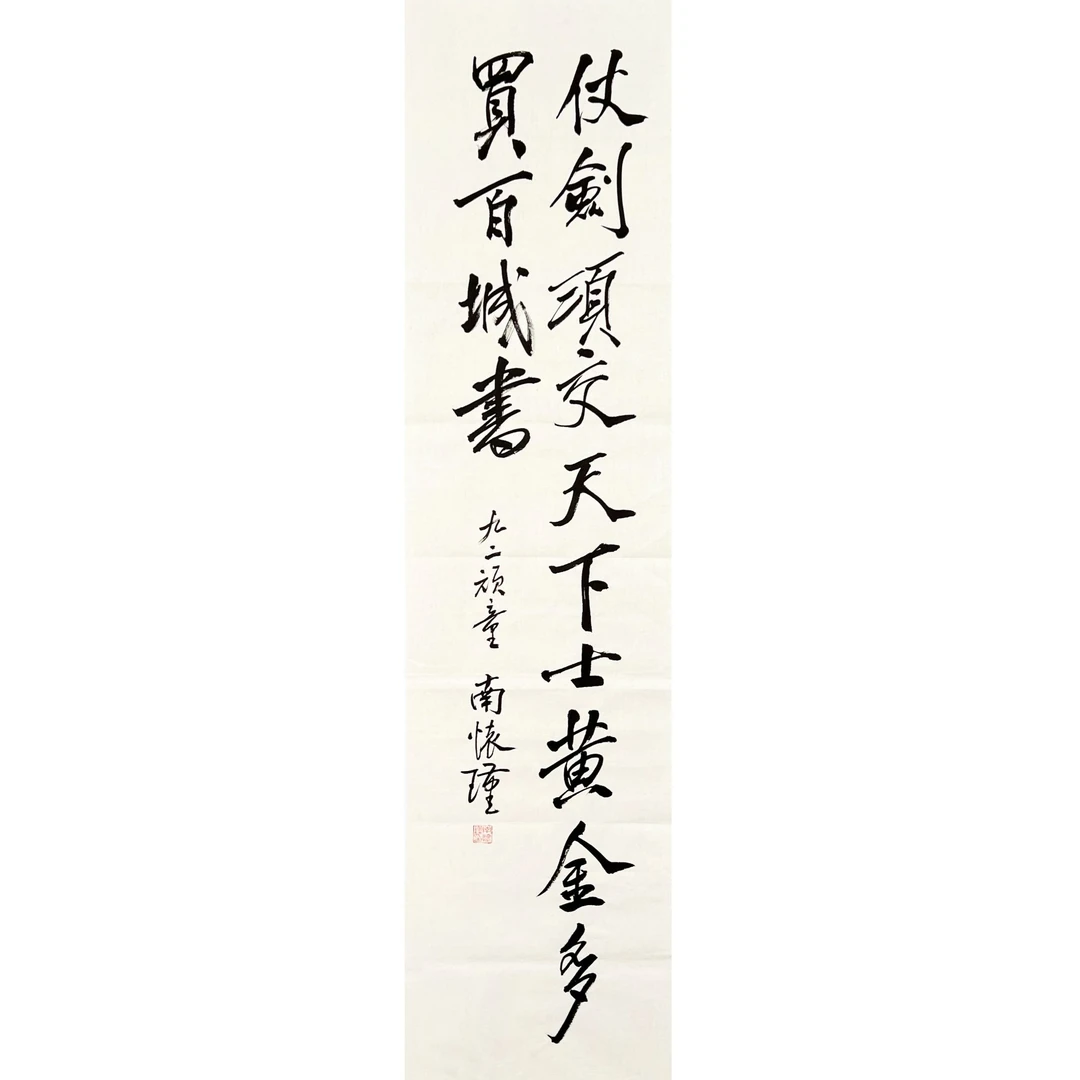 仗劍須交天下士黃金多
買百城書
九二頑童 南懷瑾